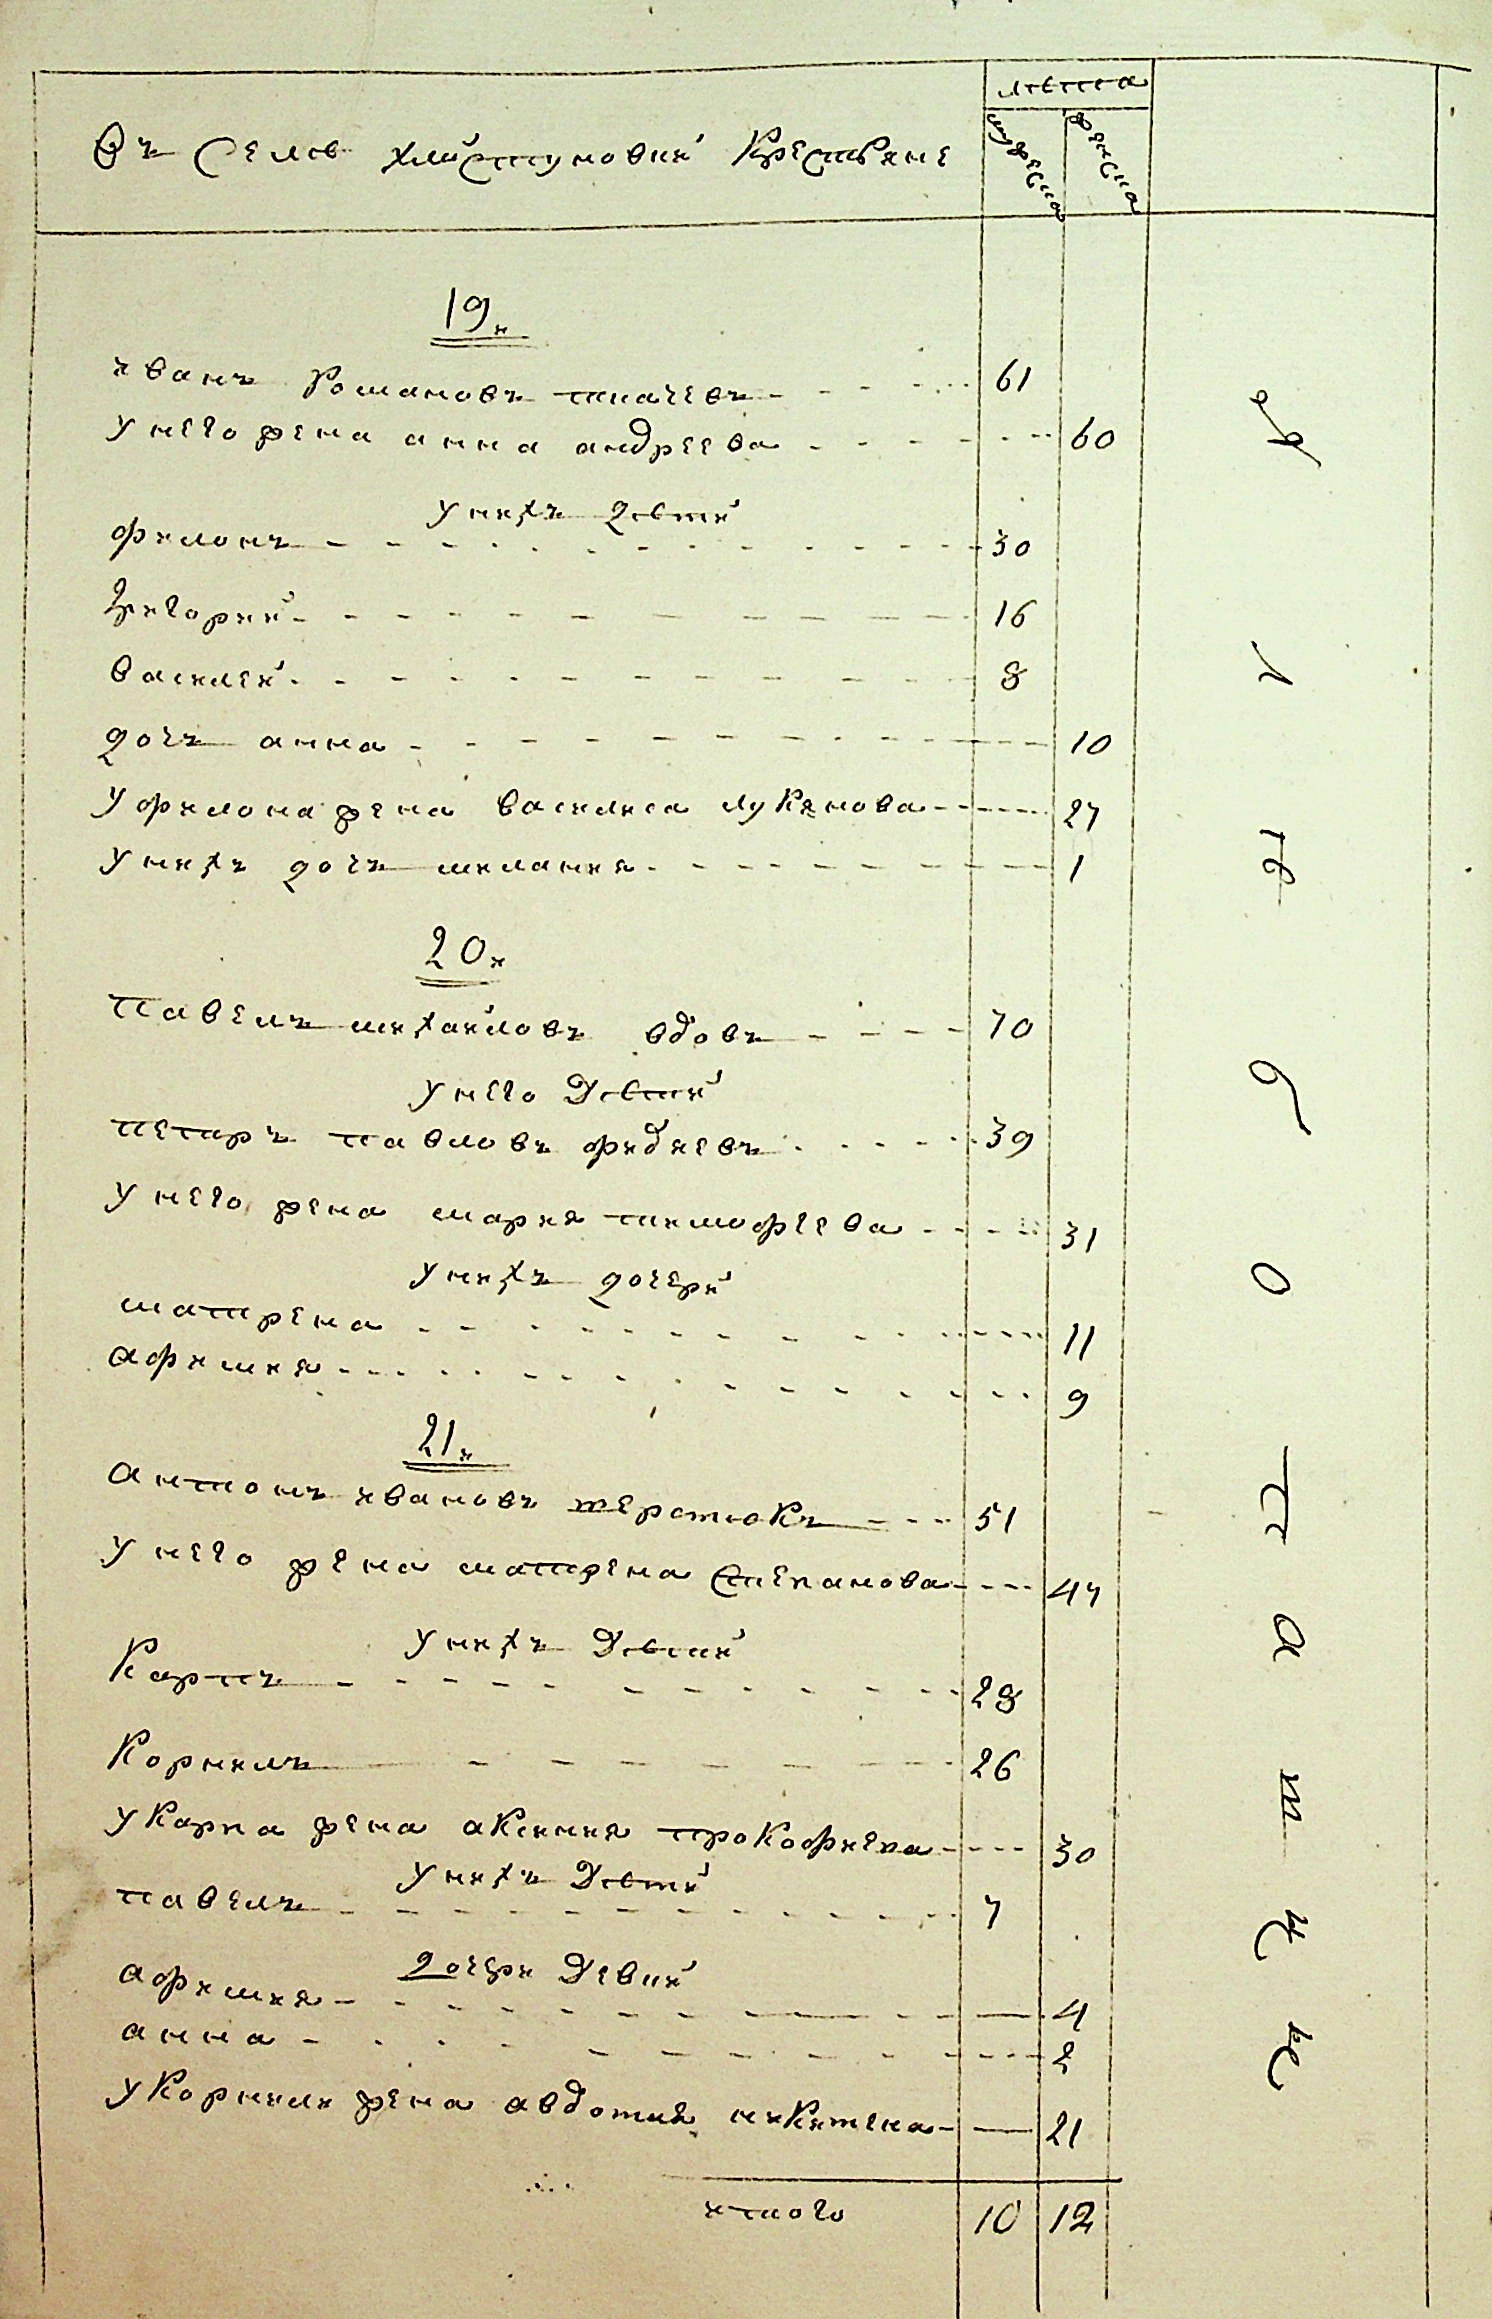 лѣта
Въ селѣ хлистуновки крестьяне
мужеска
женска
19й
иванъ романовъ ткачевъ 61
у него жена анна андреева 60
у нихъ дѣти
филонъ 30
григорий 16
василей 8
дочъ анна 10
у филона жена василиса лукянова 27
у нихъ дочъ мелания 1
20й
павелъ михайловъ вдовъ 70
у него дѣти
петаръ павловъ фидиевъ 39
у него жена мария тимофеева 31
у нихъ дочери
матрена 11
афимия 9
21й
антонъ ивановъ 51
у него жена матрена степанова 47
у нихъ дѣти
карпъ 28
корнилъ 26
у карпа жена аксиния прокофиева 30
у нихъ дѣти
павелъ 7
дочери дѣвки
афимия 4
анна 2
у корнили жена авдотия никитина 21
итого 10 12